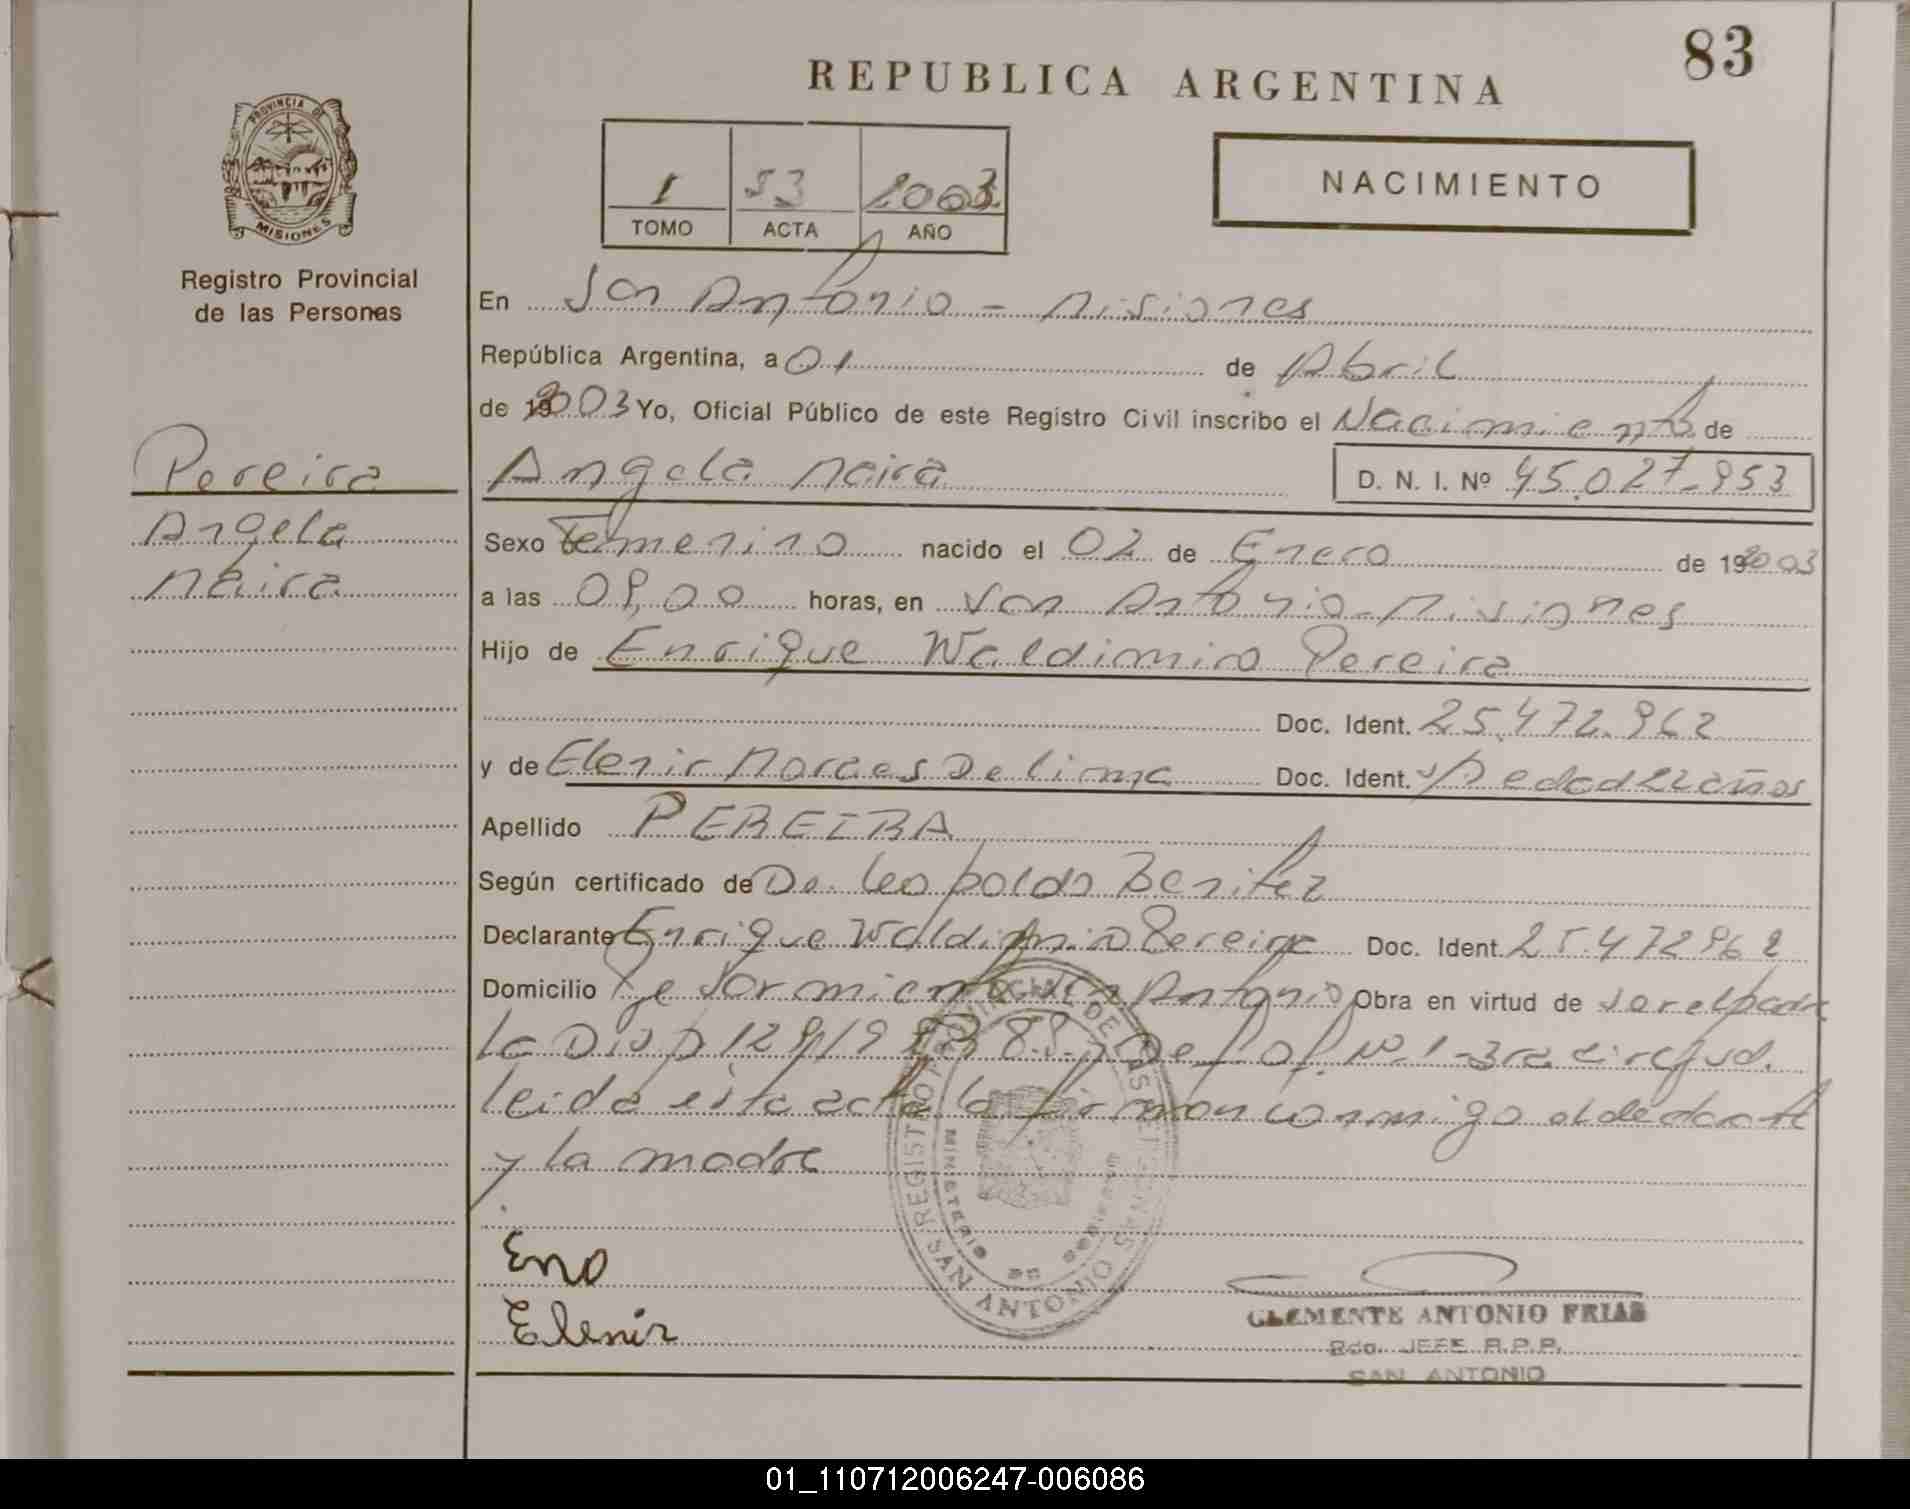 83
REPUBLICA ARGENTINA
PROVINCIA DE
MISIONES
Registro Provincial
de las Personas
1 53 2003
TOMO ACTA AÑO
NACIMIENTO
En San Antonio - Misiones
República Argentina, a 01 de Abril
de 2003 Yo, Oficial Público de este Registro Civil inscribo el Nacimiento de
Pereira
Angela Naira D. N. I. Nº 45.027.953
Angela
Naira
Sexo Femenino nacido el 02 de Enero de 2003
a las 09,00 horas, en San Antonio - Misiones
Hijo de Enrique Waldimiro Pereira
Doc. Ident. 25.472.962
y de Elenir Moraes De lima Doc. Ident. s/D edad 22 años
Apellido PEREIRA
Según certificado de Dr. Leopoldo Benitez
Declarante Enrique Waldimiro Pereira Doc. Ident. 25.472962
Domicilio San Antonio Obra en virtud de ser el padre
La Disp 129/19 Nº 1 - 3ra circ jud.
leida esta acta la firman conmigo el declarante
y la madre
REGISTRO PROVINCIAL DE LAS PERSONAS
MINISTERIO DE GOBIERNO
SAN ANTONIO
Eno
Elenir
CLEMENTE ANTONIO FRIAS
Rdo. JEFE R.P.P.
SAN ANTONIO
01_110712006247-006086